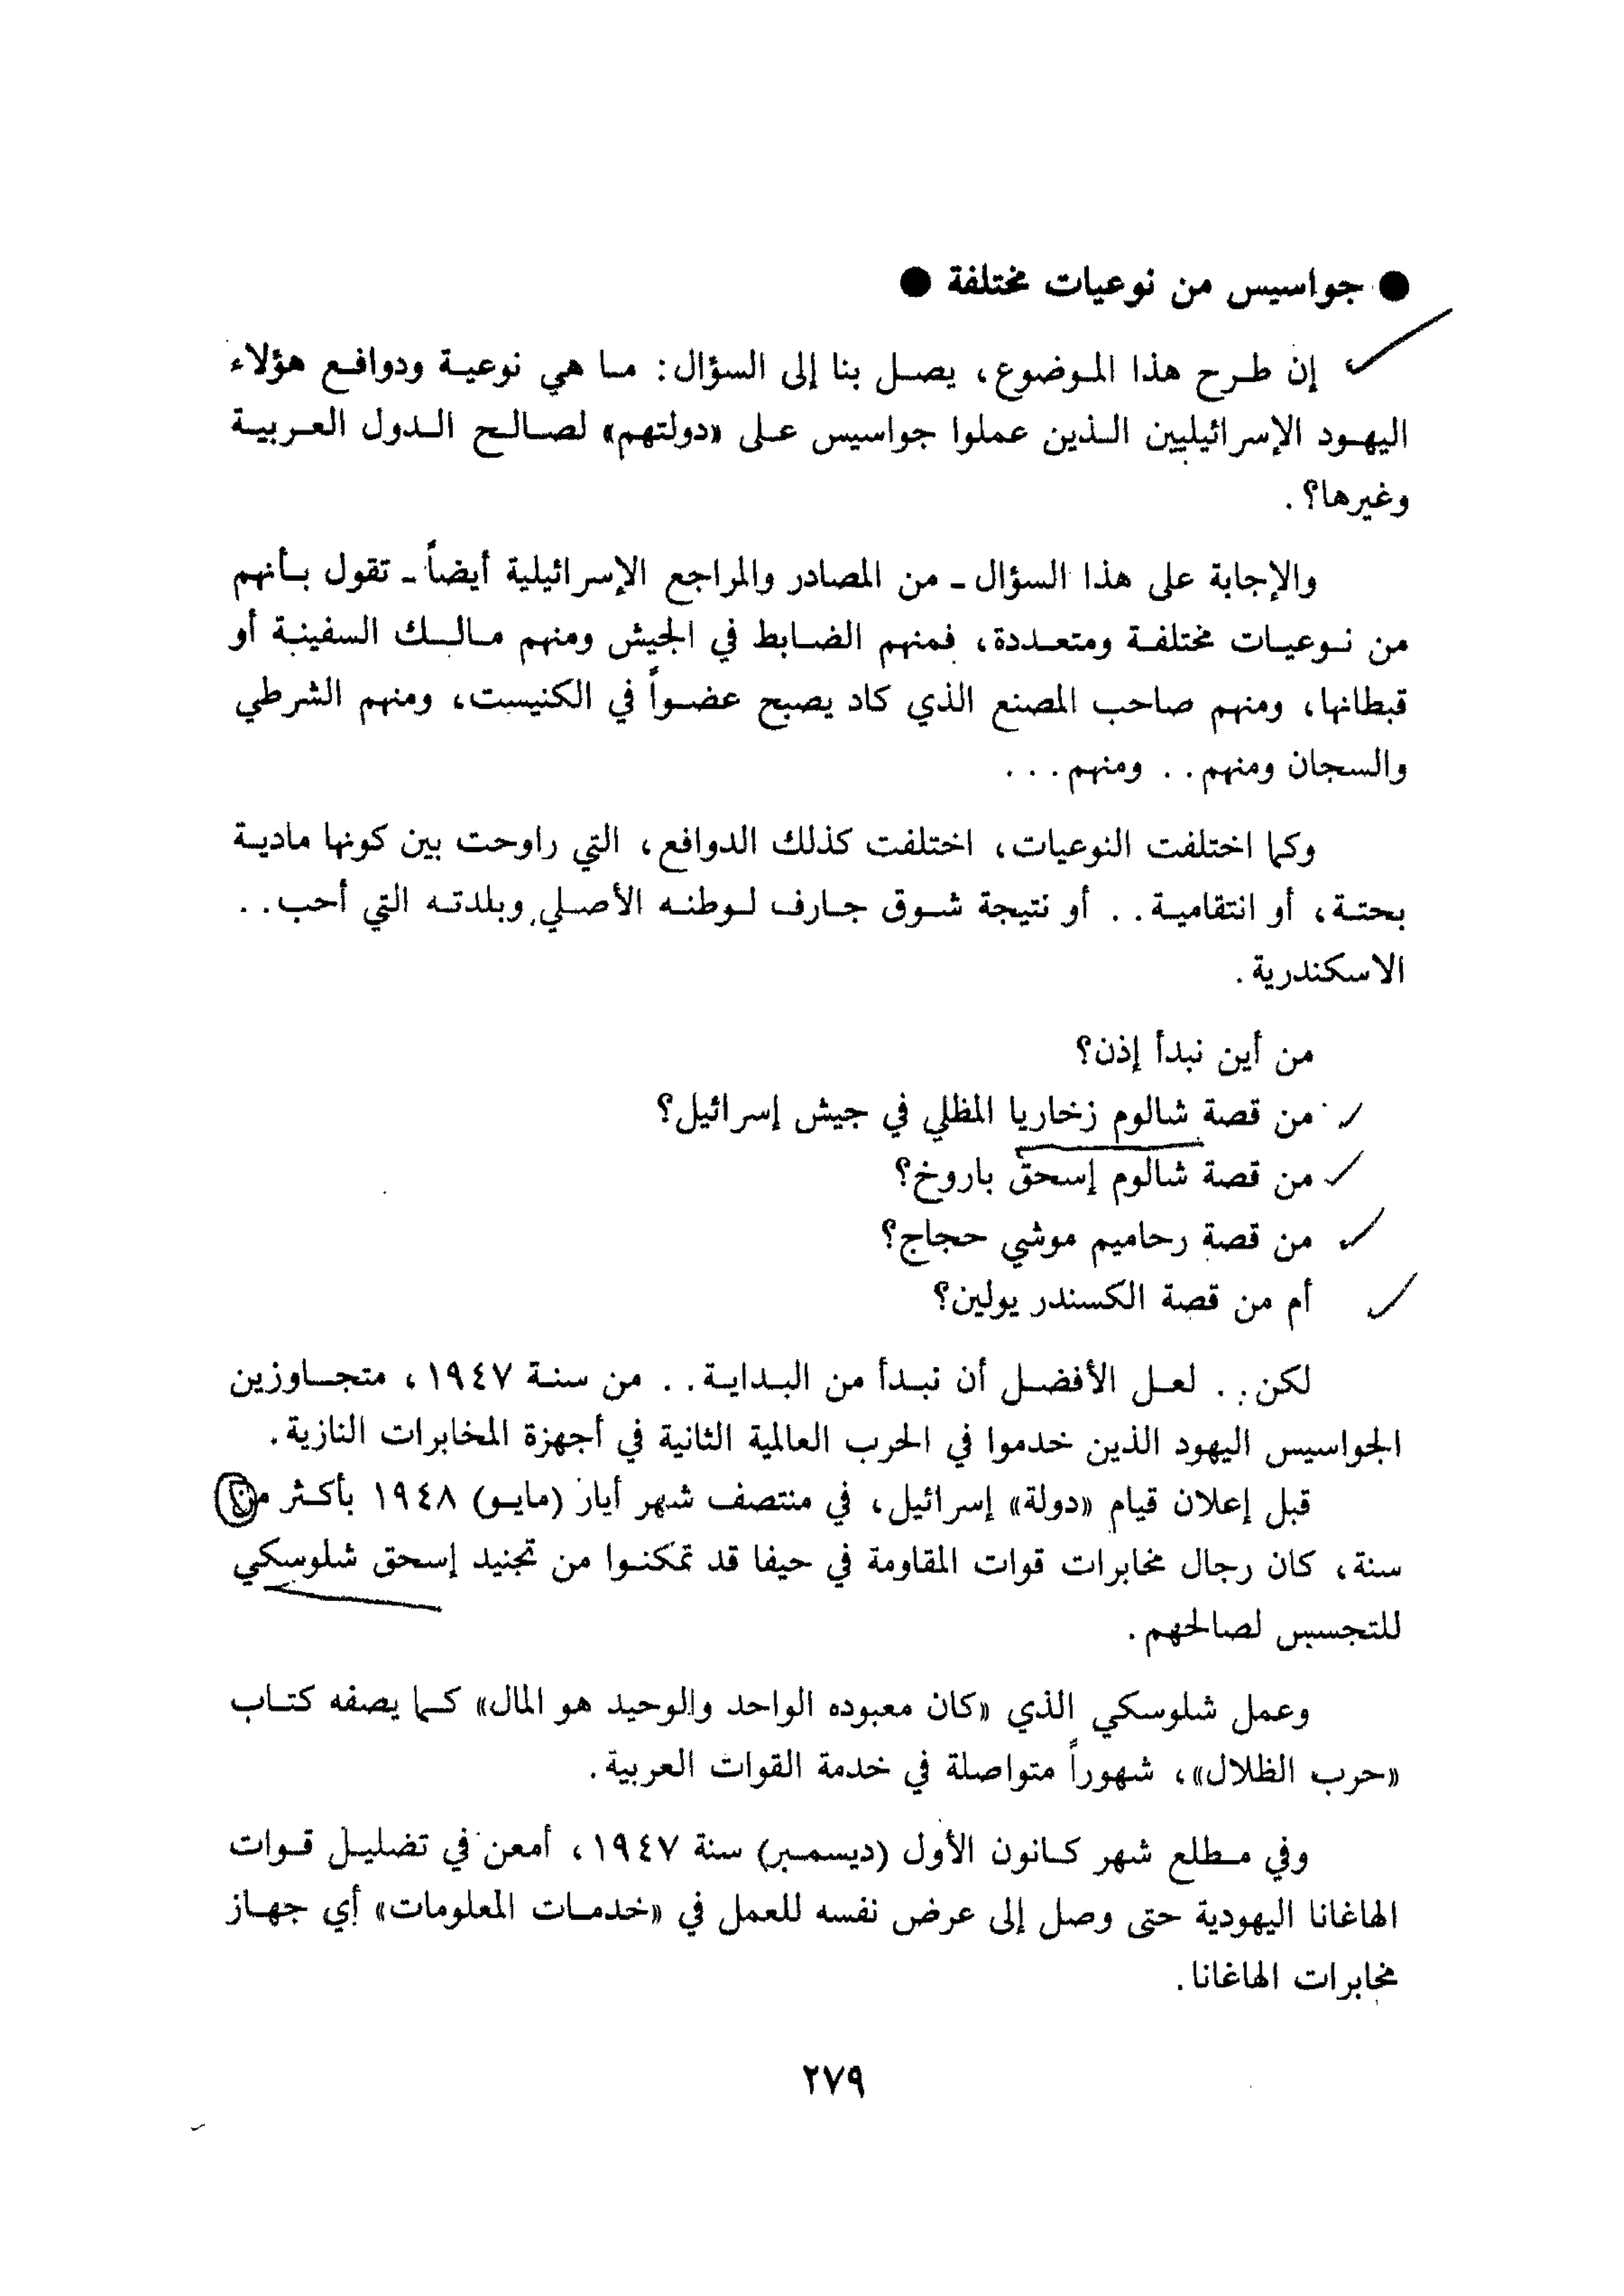 ● جواسيس من نوعيات مختلفة ●
إن طرح هذا الموضوع، يصل بنا إلى السؤال: ما هي نوعية ودوافع هؤلاء
اليهود الإسرائيليين الذين عملوا جواسيس على «دولتهم» لصالح الدول العربية
وغيرها؟.
والإجابة على هذا السؤال ـ من المصادر والمراجع الإسرائيلية أيضاً ـ تقول بأنهم
من نوعيات مختلفة ومتعددة، فمنهم الضابط في الجيش ومنهم مالك السفينة أو
قبطانها، ومنهم صاحب المصنع الذي كاد يصبح عضواً في الكنيست، ومنهم الشرطي
والسجان ومنهم.. ومنهم...
وكما اختلفت النوعيات، اختلفت كذلك الدوافع، التي راوحت بين كونها مادية
بحتة، أو انتقامية.. أو نتيجة شوق جارف لوطنه الأصلي وبلدته التي أحب..
الاسكندرية.
من أين نبدأ إذن؟
من قصة شالوم زخاريا المظلي في جيش إسرائيل؟
من قصة شالوم إسحق باروخ؟
من قصة رحاميم موشي حجاج؟
أم من قصة الكسندر يولين؟
لكن.. لعل الأفضل أن نبدأ من البداية.. من سنة ١٩٤٧، متجاوزين
الجواسيس اليهود الذين خدموا في الحرب العالمية الثانية في أجهزة المخابرات النازية.
قبل إعلان قيام «دولة» إسرائيل، في منتصف شهر أيار (مايو) ١٩٤٨ بأكثر من
سنة، كان رجال مخابرات قوات المقاومة في حيفا قد تمكنوا من تجنيد إسحق شلوسكي
للتجسس لصالحهم.
وعمل شلوسكي الذي «كان معبوده الواحد والوحيد هو المال» كما يصفه كتاب
«حرب الظلال»، شهوراً متواصلة في خدمة القوات العربية.
وفي مطلع شهر كانون الأول (ديسمبر) سنة ١٩٤٧، أمعن في تضليل قوات
الهاغانا اليهودية حتى وصل إلى عرض نفسه للعمل في «خدمات المعلومات» أي جهاز
مخابرات الهاغانا.
٢٧٩